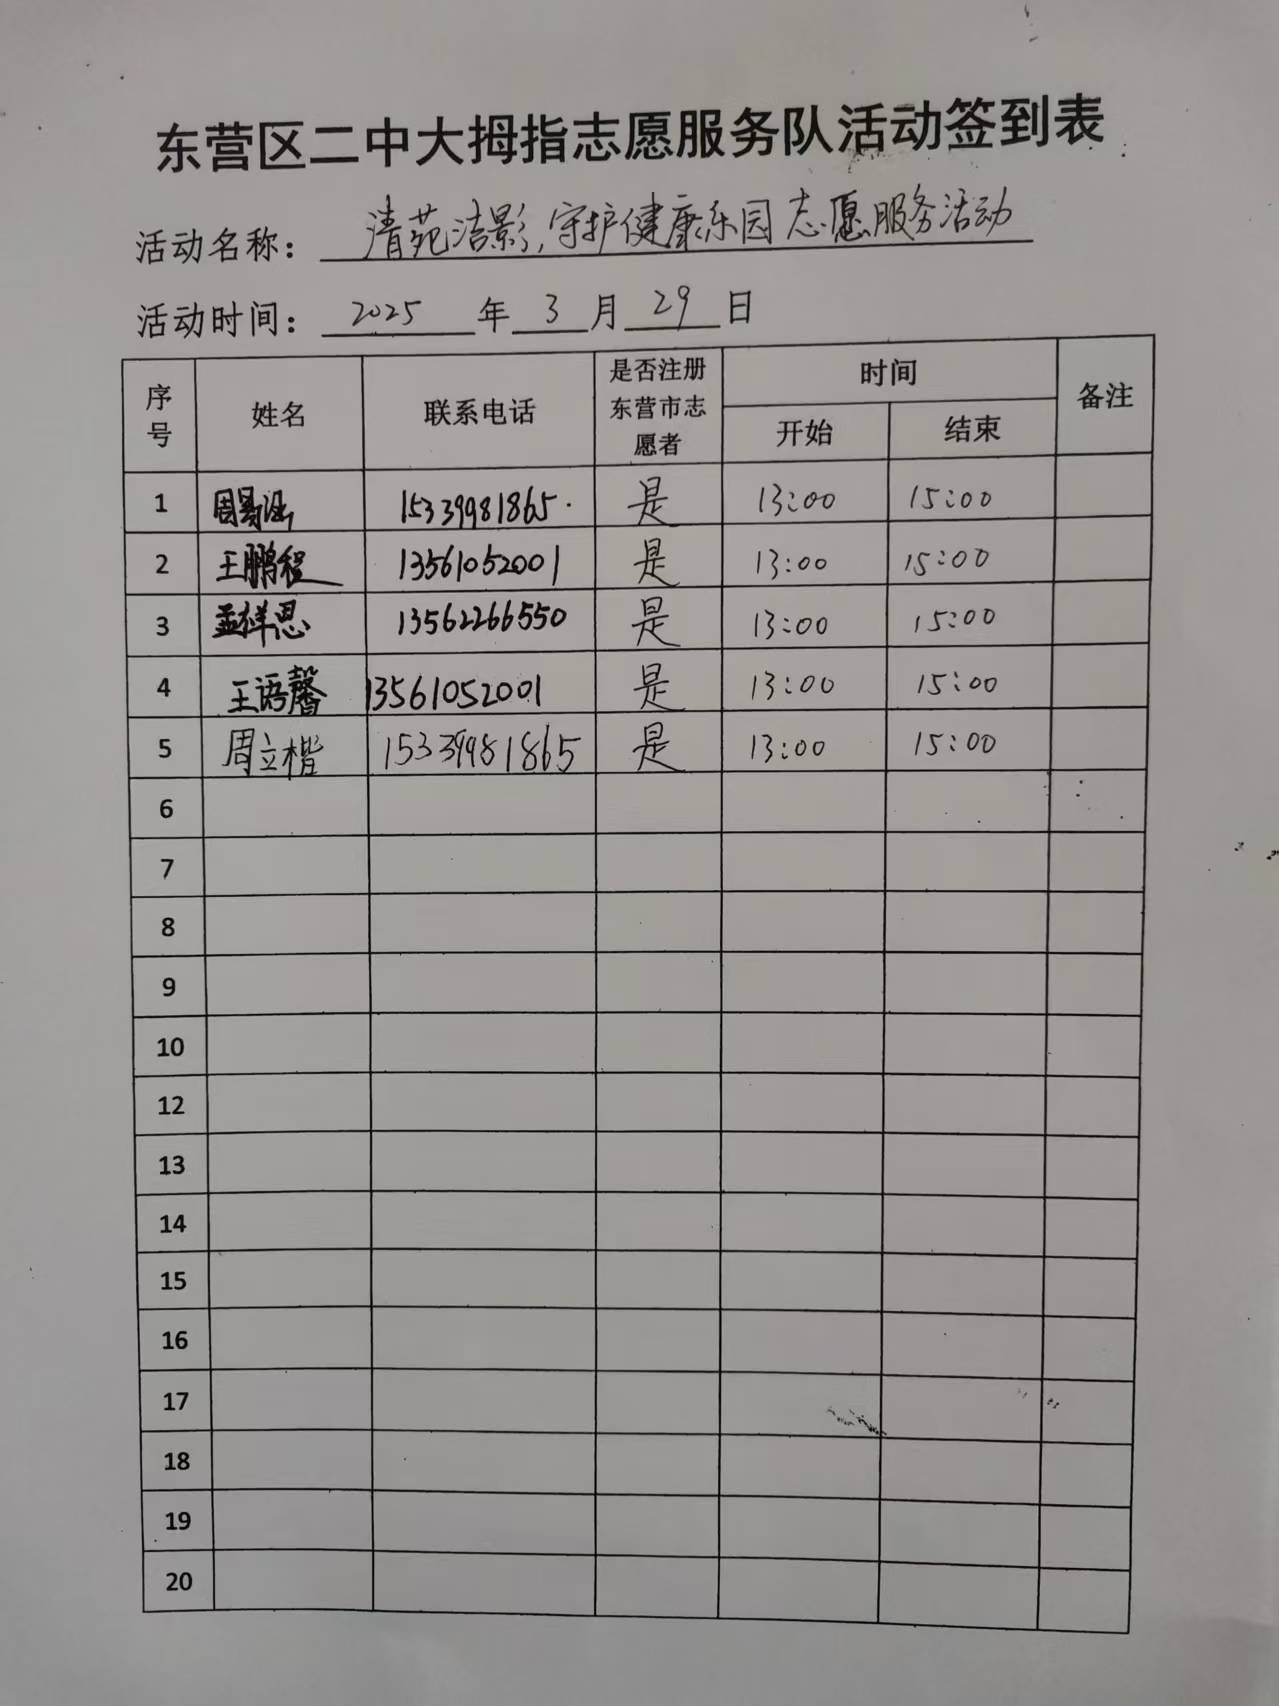 东营区二中大拇指志愿服务队活动签到表
活动名称：清苑洁影，守护健康乐园志愿服务活动
活动时间：2025年3月29日
序号 姓名 联系电话 是否注册东营市志愿者 时间 备注
开始 结束
1 周易涵 15339981865. 是 13:00 15:00
2 王鹏程 13561052001 是 13:00 15:00
3 孟祥恩 13562266550 是 13:00 15:00
4 王语馨 13561052001 是 13:00 15:00
5 周立楷 15339981865 是 13:00 15:00
6
7
8
9
10
12
13
14
15
16
17
18
19
20